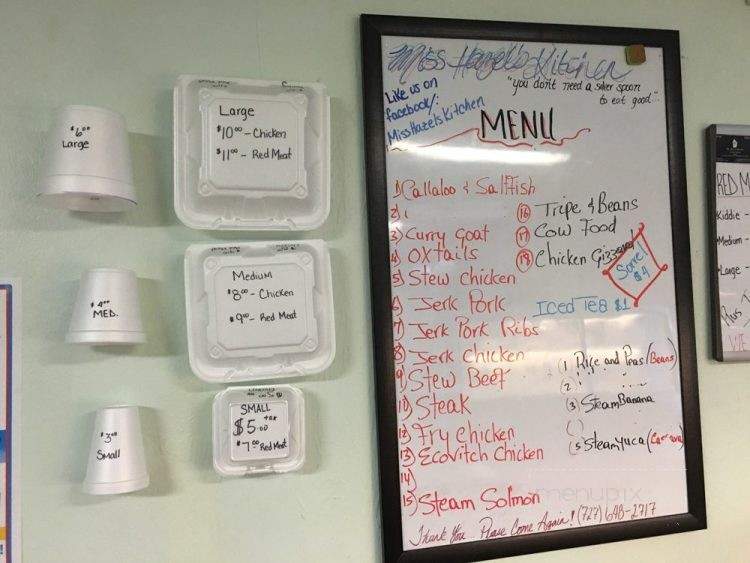 $6.00
Large
$4.00
MED.
$3.00
Small
Large
$10.00 - Chicken
$11.00 - Red Meat
Medium
$8.00 - Chicken
$9.00 - Red Meat
SMALL
$5.00 + tax
$7.00 Red Meat
Miss Hazel's Kitchen
"you don't need a silver spoon
to eat good"
Like us on
facebook/:
MissHazelsKitchen
MENU
1) Callaloo & Saltfish
2)
3) Curry Goat
4) OXTails
5) Stew Chicken
6) Jerk Pork
7) Jerk Pork Ribs
8) Jerk Chicken
9) Stew Beef
10) Steak
12) Fry Chicken
13) Ecovitch Chicken
14)
15) Steam Solmon
16 Tripe & Beans
17 Cow Food
18 Chicken Gizzard
Sorrel
$4
Iced Tea $1
(1) Rice and Peas/(Beans)
(2)
(3) Steam Banana
()
(5 Steam Yuca/(Cassava)
Thank You Please Come Again! (727) 698-2717
menupix
RED M
Kiddie -
Medium -
Large -
Plus T